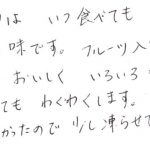 は いつ食べても
味です。フルーツ入
おいしく いろいろ
ても わくわくします。
かったので 少し凍らせて